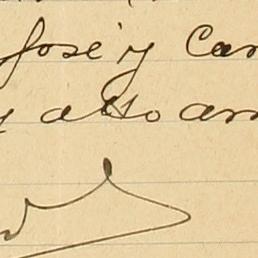 José y Car
y alto am